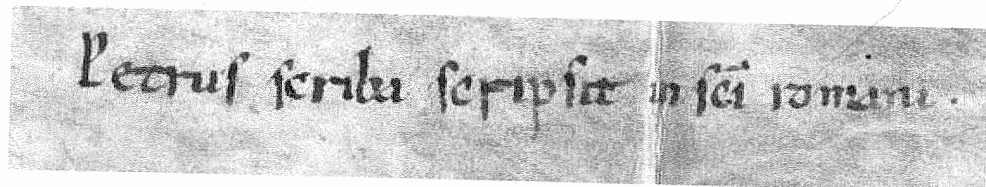 Petrus scriba scripsit in sc̄i romani.